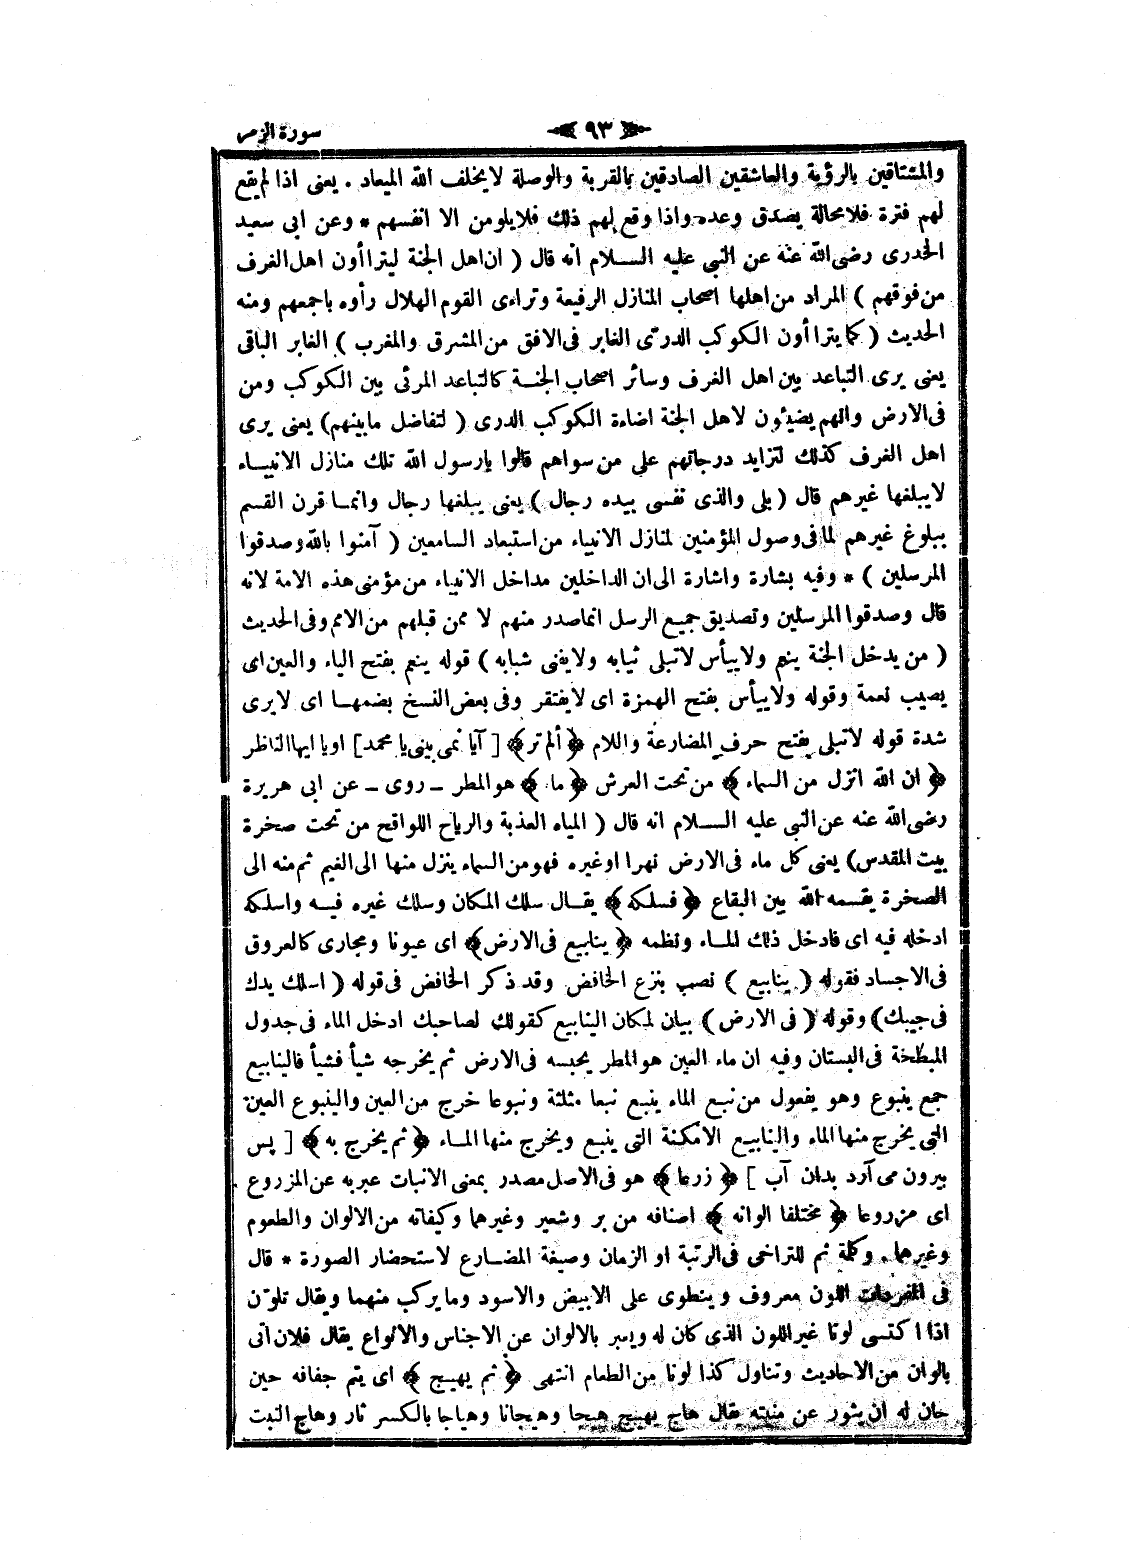 سورة الزمر
﴿ ٩٣ ﴾
والمشتاقين بالرؤية والعاشقين الصادقين بالقربة والوصلة لايخلف الله الميعاد . يعنى اذا لم يقع
لهم فترة فلامحالة يصدق وعده واذا وقع لهم ذلك فلايلومن الا انفسهم * وعن ابى سعيد
الخدرى رضى الله عنه عن النبى عليه الســلام انه قال ( ان اهل الجنة ليتراأون اهل الغرف
من فوقهم ) المراد من اهلها اصحاب المنازل الرفيعة وتراءى القوم الهلال رأوه باجمعهم ومنه
الحديث ( كما يتراأون الكوكب الدرى الغابر فى الافق من المشرق والمغرب ) الغابر الباقى
يعنى يرى التباعد بين اهل الغرف وسائر اصحاب الجنــة كالتباعد المرئى بين الكوكب ومن
فى الارض وانهم يضيئون لاهل الجنة اضاءة الكوكب الدرى ( لتفاضل مابينهم) يعنى يرى
اهل الغرف كذلك لتزايد درجاتهم على من سواهم قالوا يارسول الله تلك منازل الانبيــاء
لايبلغها غيرهم قال ( بلى والذى نفسى بيده رجال ) يعنى يبلغها رجال وانمــا قرن القسم
ببلوغ غيرهم لما فى وصول المؤمنين لمنازل الانبياء من استبعاد السامعين ( آمنوا بالله وصدقوا
المرسلين ) * وفيه بشارة واشارة الى ان الداخلين مداخل الانبياء من مؤمنى هذه الامة لانه
قال وصدقوا المرسلين وتصديق جميع الرسل انماصدر منهم لا ممن قبلهم من الامم وفى الحديث
( من يدخل الجنة ينعم ولاييأس لاتبلى ثيابه ولايفنى شبابه ) قوله ينعم بفتح الياء والعين اى
يصيب نعمة وقوله ولاييأس بفتح الهمزة اى لايفتقر وفى بعض النسخ بضمهــا اى لايرى
شدة قوله لاتبلى بفتح حرف المضارعة واللام ﴿ ألم تر ﴾ [ آيا نمى بينى يا محمد ] اويا ايها الناظر
﴿ ان الله انزل من السماء ﴾ من تحت العرش ﴿ ماء ﴾ هو المطر ـ روى ـ عن ابى هريرة
رضى الله عنه عن النبى عليه الســلام انه قال ( المياه العذبة والرياح اللواقح من تحت صخرة
بيت المقدس) يعنى كل ماء فى الارض نهرا اوغيره فهو من السماء ينزل منها الى الغيم ثم منه الى
الصخرة يقسمه الله بين البقاع ﴿ فسلكه ﴾ يقــال سلك المكان وسلك غيره فيــه واسلكه
ادخله فيه اى فادخل ذلك المــاء ونظمه ﴿ ينابيع فى الارض ﴾ اى عيونا ومجارى كالعروق
فى الاجساد فقوله ( ينابيع ) نصب بنزع الخافض وقد ذكر الخافض فى قوله ( اسلك يدك
فى جيبك) وقوله ( فى الارض ) بيان لمكان الينابيع كقولك لصاحبك ادخل الماء فى جدول
المبطخة فى البستان وفيه ان ماء العين هو المطر يحبسه فى الارض ثم يخرجه شيأ فشيأ فالينابيع
جمع ينبوع وهو يفعول من نبع الماء ينبع نبعا مثلثة ونبوعا خرج من العين والينبوع العين
التى يخرج منها الماء والينابيع الامكنة التى ينبع ويخرج منها المــاء ﴿ ثم يخرج به ﴾ [ پس
بيرون مى آرد بدان آب ] ﴿ زرعا ﴾ هو فى الاصل مصدر بمعنى الانبات عبربه عن المزروع
اى مزروعا ﴿ مختلفا الوانه ﴾ اصنافه من بر وشعير وغيرهما وكيفاته من الالوان والطعوم
وغيرهما . وكلة ثم للتراخى فى الرتبة او الزمان وصيغة المضــارع لاستحضار الصورة * قال
فى المفردات اللون معروف وينطوى على الابيض والاسود وما يركب منهما ويقال تلون
اذا اكتسى لونا غير اللون الذى كان له ويعبر بالالوان عن الاجناس والانواع يقال فلان اتى
بالوان من الاحاديث وتناول كذا لونا من الطعام انتهى ﴿ ثم يهيــج ﴾ اى يتم جفافه حين
حان له ان يثور عن منبته يقال هاج يهيــج هيجا وهيجانا وهياجا بالكسر ثار وهاج النبت